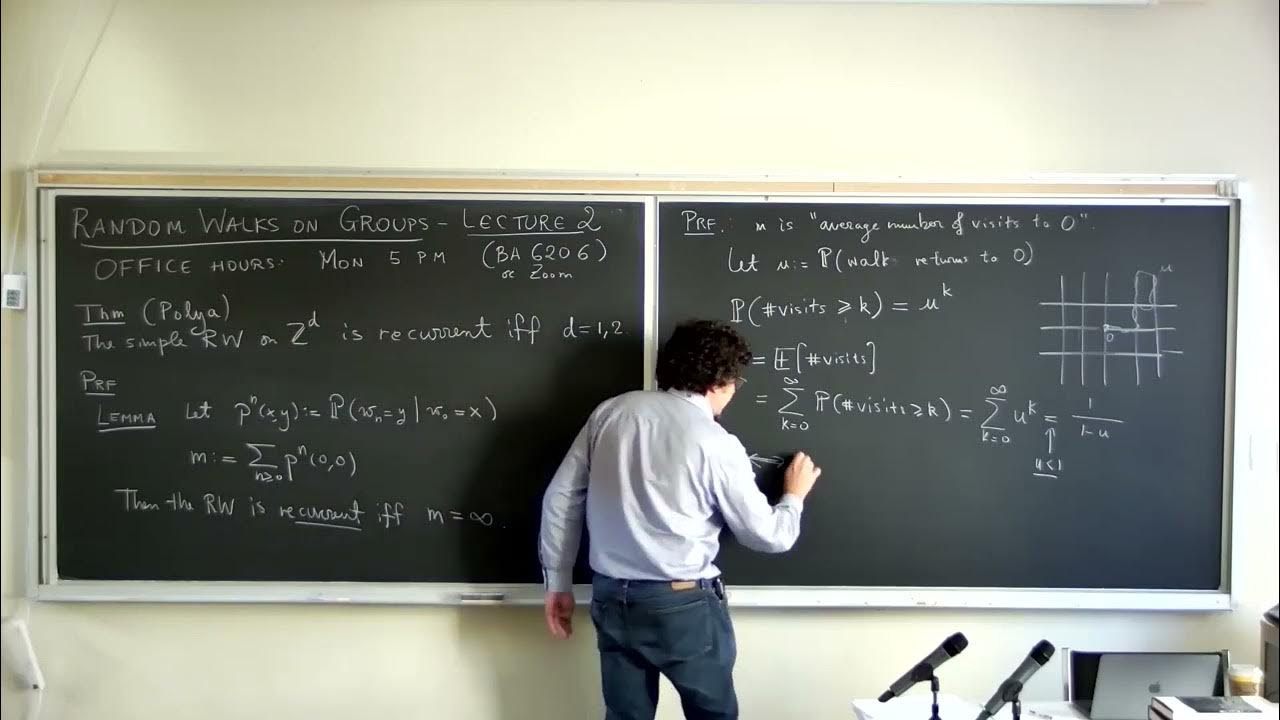 RANDOM WALKS ON GROUPS - LECTURE 2
OFFICE HOURS: MON 5 PM (BA 6206)
or Zoom
Thm (Polya)
The simple RW on Z^d is recurrent iff d=1,2.
PRF
LEMMA Let p^n(x,y) := P(w_n=y | w_0=x)
m := ∑_{n≥0} p^n(0,0)
Then the RW is recurrent iff m = ∞.
PRF.: m is "average number of visits to 0".
Let u := P(walk returns to 0)
P(#visits ≥ k) = u^k
= E[#visits]
= ∑_{k=0}^∞ P(#visits ≥ k) = ∑_{k=0}^∞ u^k = 1/(1-u)
↑
u<1
⟺
u
0